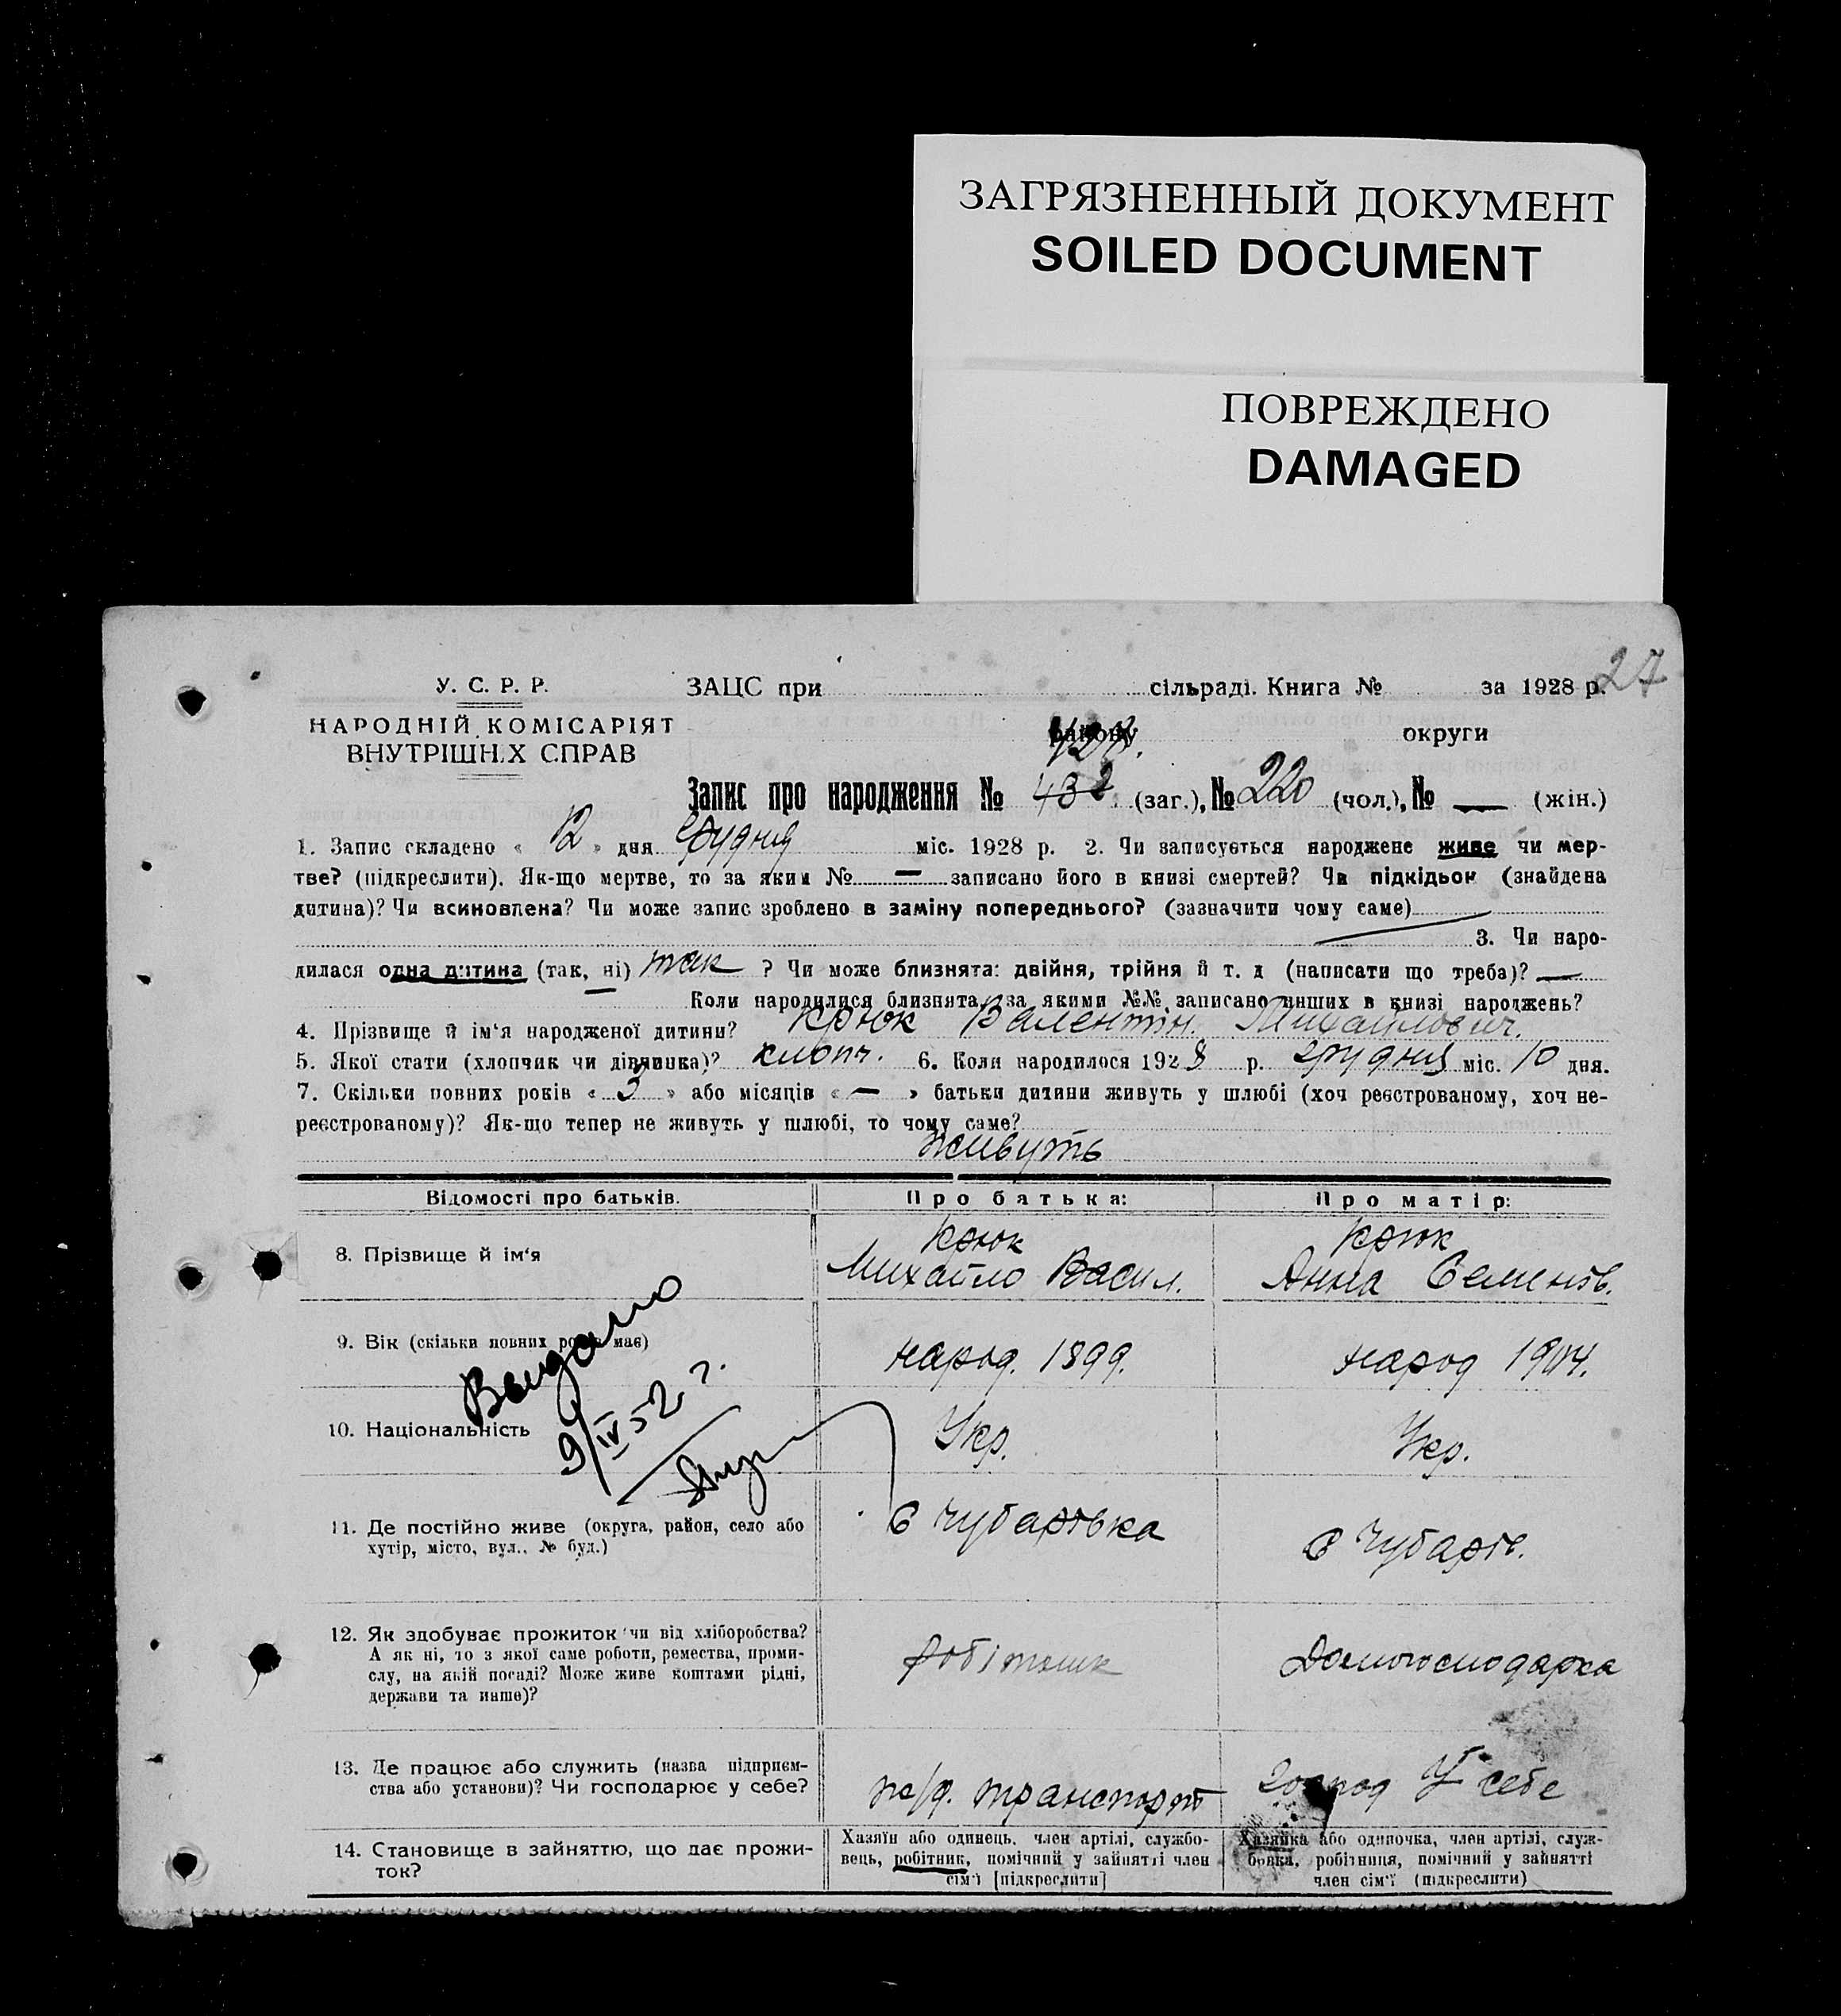 ЗАГРЯЗНЕННЫЙ ДОКУМЕНТ
SOILED DOCUMENT
ПОВРЕЖДЕНО
DAMAGED
27
У. С. Р. Р.
НАРОДНІЙ КОМІСАРІЯТ
ВНУТРІШНІХ СПРАВ
ЗАЦС при сільраді. Книга № за 1928 р.
району округи
428.
Запис про народження № 432 (заг.), № 220 (чол.), № — (жін.)
1. Запис складено « 12 » дня грудня міс. 1928 р. 2. Чи записується народжене живе чи мер-
тве? (підкреслити). Як-що мертве, то за яким № — записано його в книзі смертей? Чи підкідьок (знайдена
дитина)? Чи всиновлена? Чи може запис зроблено в заміну попереднього? (зазначити чому саме)
3. Чи наро-
дилася одна дитина (так, ні) так ? Чи може близнята: двійня, трійня й т. д (написати що треба)? —
Коли народилися близнята, за якими №№ записано инших в книзі народжень?
4. Прізвище й ім'я народженої дитини? Крюк Валентін. Михайлович.
5. Якої стати (хлопчик чи дівчинка)? хлопч. 6. Коли народилося 1928 р. грудня міс. 10 дня.
7. Скільки повних років « 3 » або місяців « — » батьки дитини живуть у шлюбі (хоч реєстрованому, хоч не-
реєстрованому)? Як-що тепер не живуть у шлюбі, то чому саме?
живуть
Відомості про батьків. Про батька: Про матір:
8. Прізвище й ім'я
Крюк
Михайло Васил.
Крюк
Анна Семенов.
9. Вік (скільки повних років має) народ. 1899. народ 1904.
Выдано
9/IV 52 г.
10. Національність Укр. Укр.
11. Де постійно живе (округа, район, село або
хутір, місто, вул., № буд.)
с Чубарівка
с Чубарів.
12. Як здобуває прожиток чи від хліборобства?
А як ні, то з якої саме роботи, ремества, проми-
слу, на якій посаді? Може живе коштами рідні,
держави та инше)?
робітник
Домогосподарка
13. Де працює або служить (назва підприєм-
ства або установи)? Чи господарює у себе?
ж/д. транспорт
господ У себе
14. Становище в зайняттю, що дає прожи-
ток?
Хазяїн або одинець, член артілі, службо-
вець, робітник, помічний у зайнятті член
сім'ї [підкреслити]
Хазяйка або одиночка, член артілі, служ-
бовка, робітниця, помічний у зайнятті
член сім'ї (підкреслити)